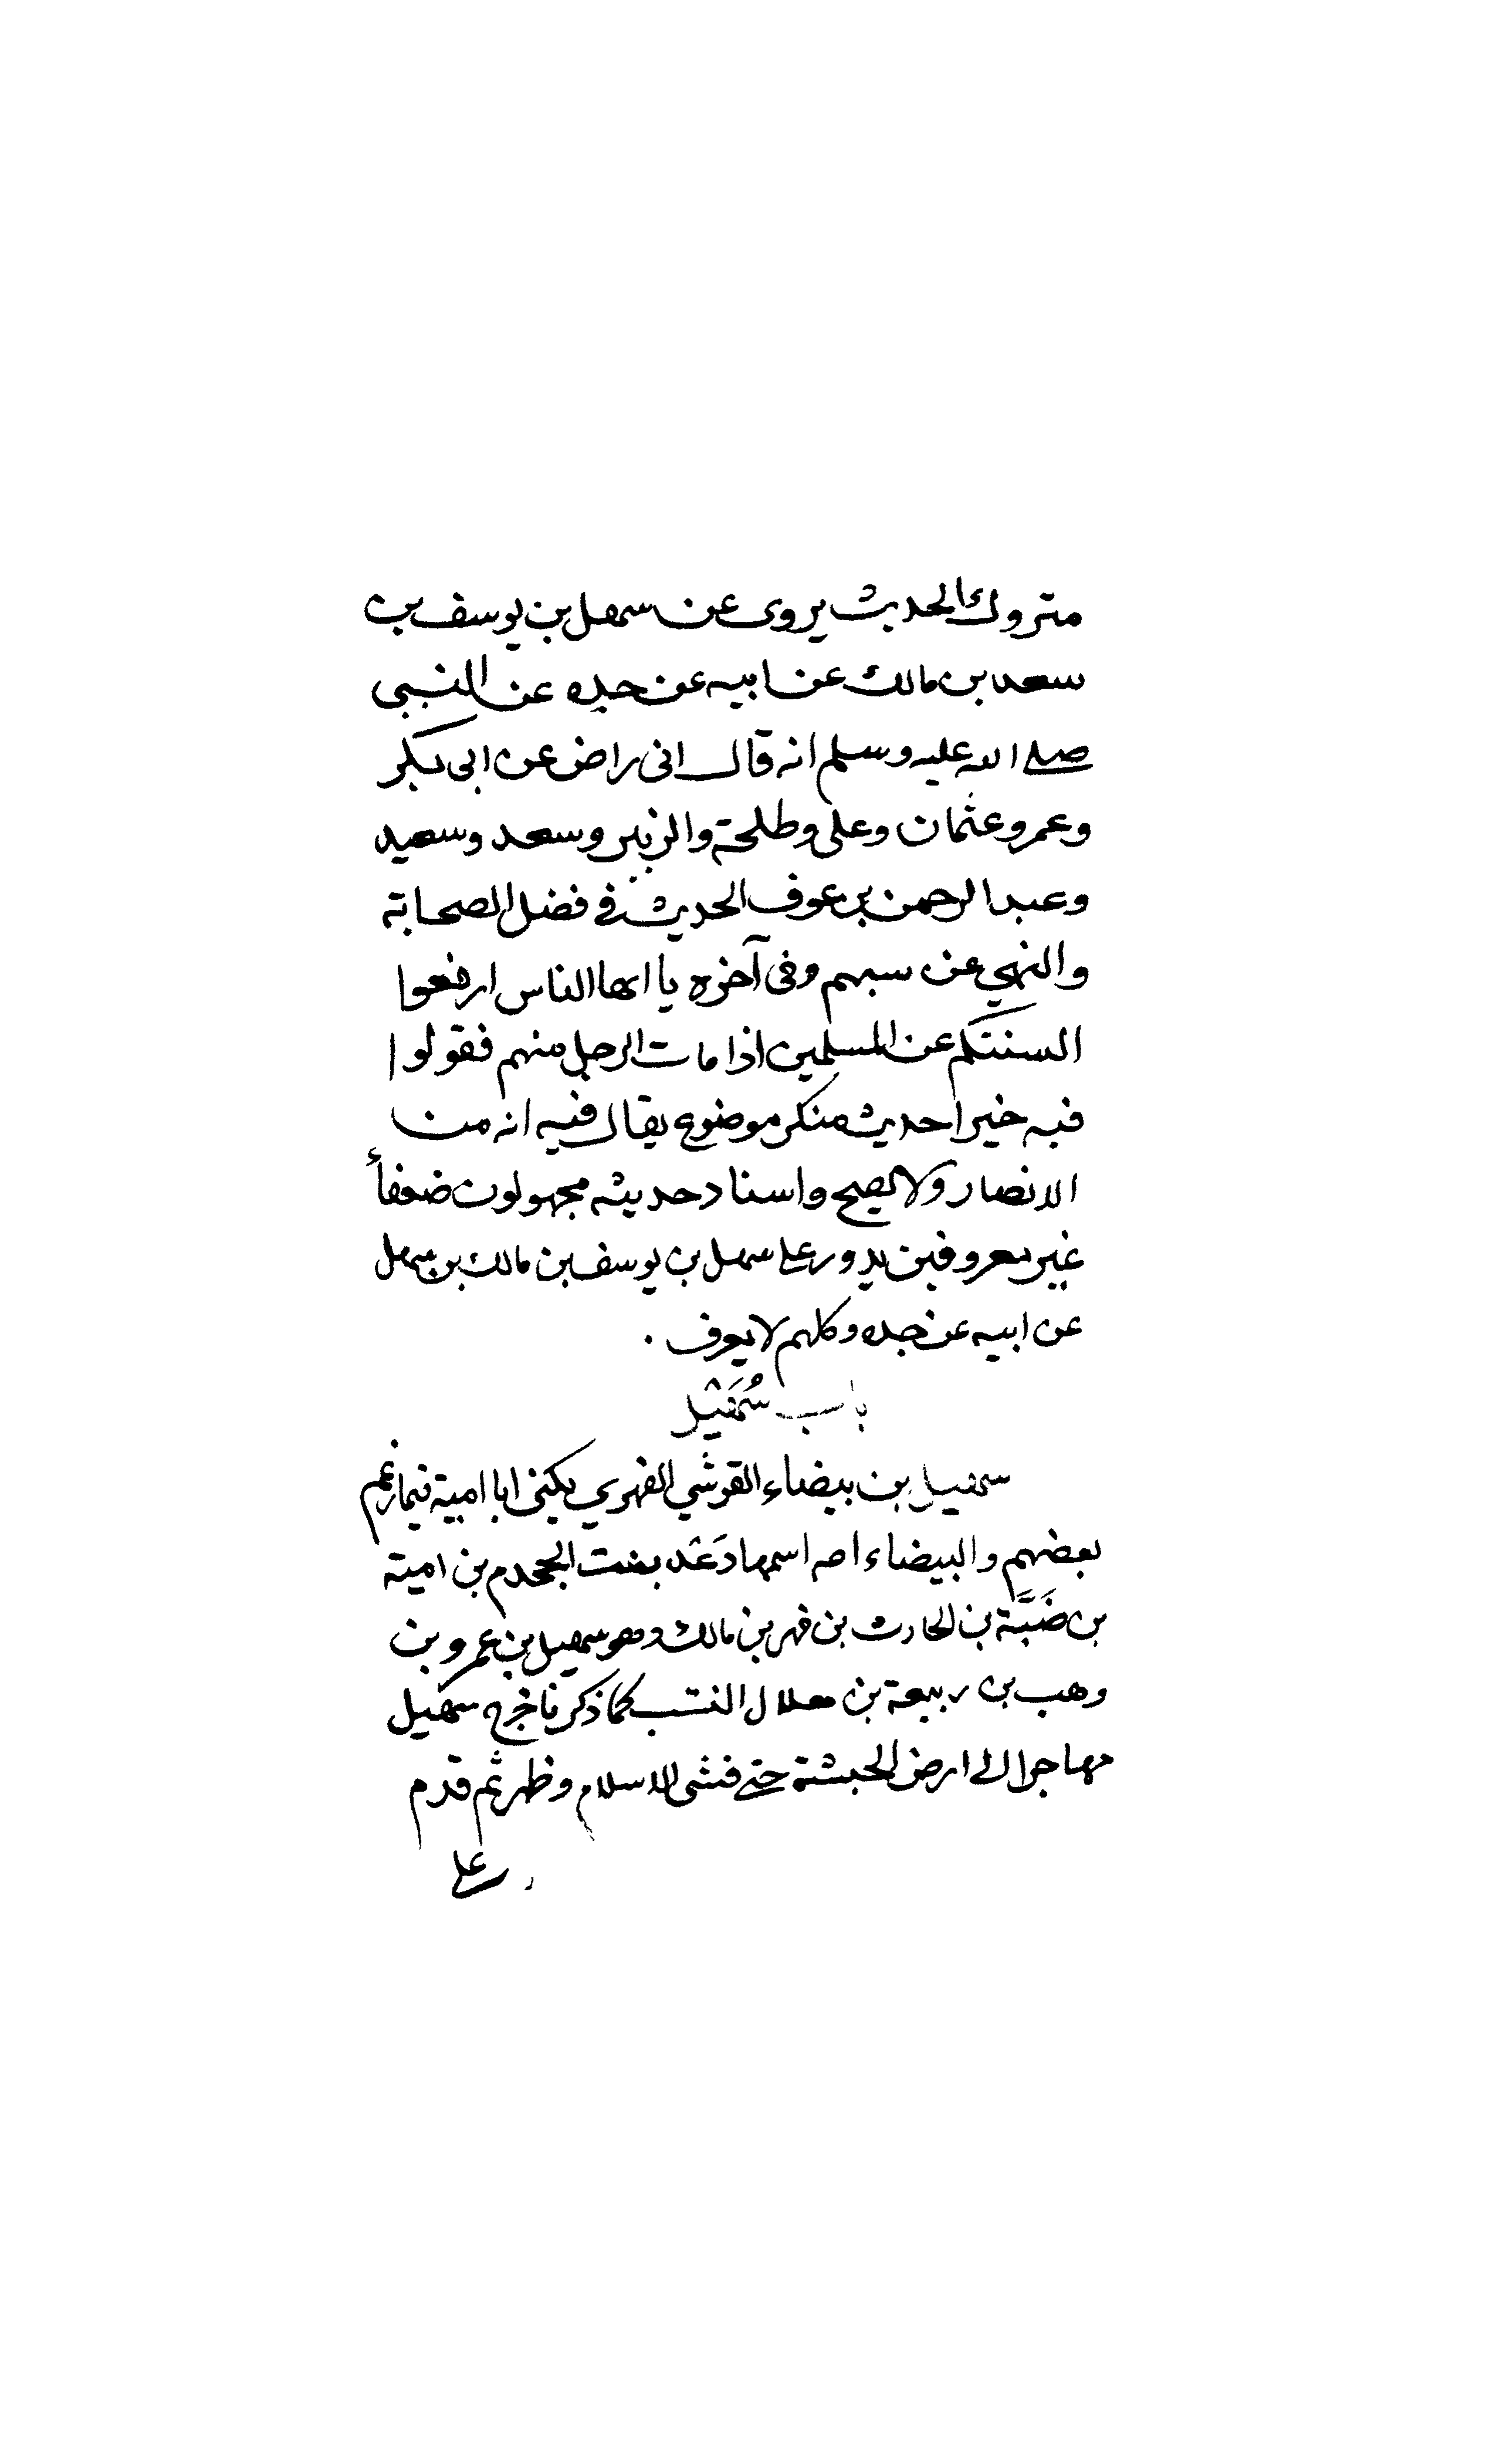 متروك الحديث يروى عن سهل بن يوسف بن
سعد بن مالك عن ابيه عن جده عن النبي
صلى الله عليه وسلم انه قال انى راض عن ابى بكر
وعمر وعثمان وعلى وطلحة والزبير وسعد وسعيد
وعبد الرحمن بن عوف الحديث في فضل الصحابة
والنهي عن سبهم وفى آخره يا ايها الناس ارفعوا
السنتكم عن المسلمين اذا مات الرجل منهم فقولوا
فيه خيرا حديث منكر موضوع يقال فيه انه من
الانصار ولا يصح واسناد حديثه مجهولون ضعفأ
غير معروفين يدور على سهل بن يوسف بن مالك بن سهل
عن ابيه عن جده وكلهم لا يعرف .
باب سُهَيْل
سهيل بن بيضاء القرشي الفهري يكنى ابا امية فيما زعم
بعضهم والبيضاء امه اسمها دَعْد بنت الجحدم بن امية
بن ضَبَّة بن الحارث بن فهر بن مالك وهو سهيل بن عمرو بن
وهب بن ربيعة بن هلال النسب كما ذكرنا خرج سهيل
مهاجرا الى ارض الحبشة حتى فشى الاسلام وظهر ثم قدم
على